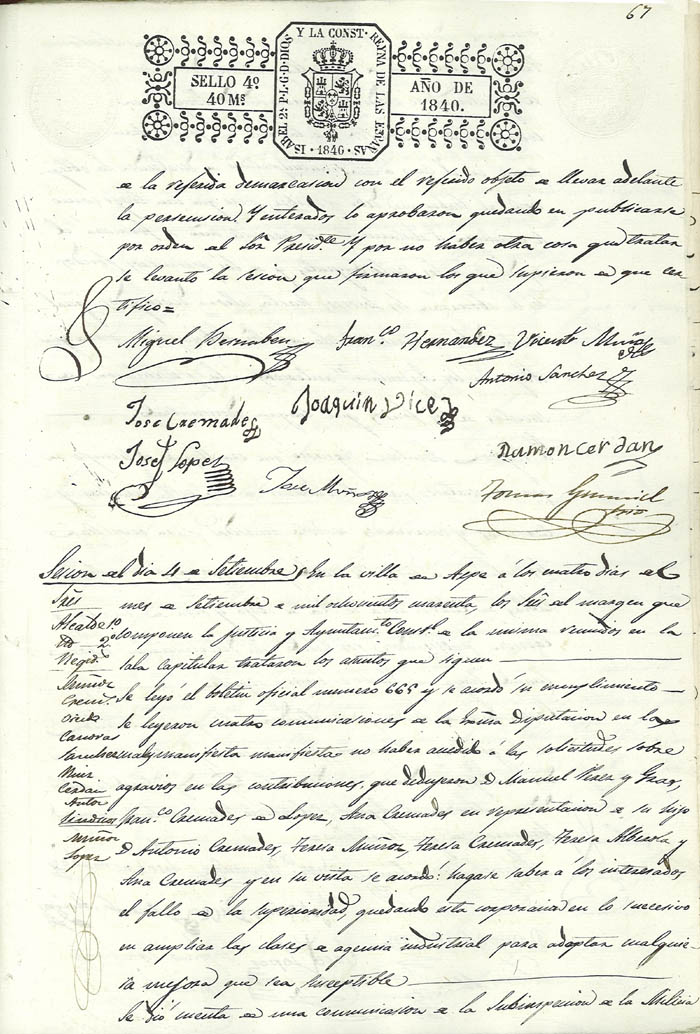 67
ISABEL 2ª P.L.G.D.DIOS Y LA CONST. REYNA DE LAS ESPAÑAS · 1840 ·
SELLO 4º
40 Mˢ
AÑO DE
1840.
de la referida demarcacion con el referido objeto de llevar adelante
la persecusion. Y enterados lo aprobaron quedando en publicarse
por orden del Sor. Presidte. Y por no haber otra cosa que tratar
se levantó la sesion que firmaron los que supieron de que cer
tifico=
Miguel
Franco Hernandez
Vicente Muñoz
Antonio Sanchez
Jose Cremades
Joaquin Vicedo
Jose Lopez
Jose Muñoz
Ramon Cerdan
Tomas
Srio
Sesion del dia 4 de Setiembre
En la villa de Aspe á los cuatro dias del
mes de Setiembre de mil ochocientos cuarenta, los Sres del margen que
componen la Justicia y Ayuntamto Constl. de la misma reunidos en la
sala Capitular trataron los asuntos que siguen
Sres
Alcalde 1º
Id 2º
Regid.
Muñoz
Crem.
Vicedo
Canovas
Sanchez
Cerdan
Autor
Sindicos
Muñoz
Lopez
Se leyó el boletin oficial numero 665 y se acordó su cumplimiento
Se leyeron cuatro comunicaciones de la Exma Diputacion en las
cuales manifiesta manifiesta no haber accedido á las solicitudes sobre
agravios en las contribuciones, que dedujeron D. Manuel Perez y Gras,
Franco Cremades de Lopez, Ana Cremades en representacion de su hijo
D. Antonio Cremades, Teresa Muñoz, Teresa Cremades, Teresa Alberola y
Ana Cremades y en su vista se acordó: hagase saber á los interesados
el fallo de la superioridad, quedando esta corporacion en lo sucesivo
en ampliar las clases de agencia industrial para adoptar cualquie
ra mejora que sea suceptible
Se dió cuenta de una comunicacion de la Subinspeccion de la Milicia